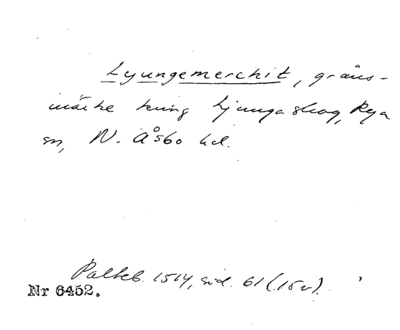 Lyungemerchit, gräns-
märke kring Ljungaskog, Rya
sn, N. Åsbo hd.
Palteb. 1514, sid. 61 (15v).
Nr 6452.